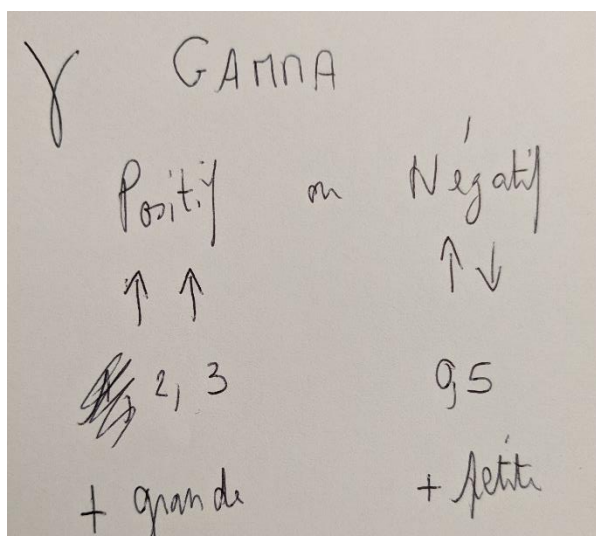 γ GAMMA
Positif ou Négatif
↑ ↑ ↑ ↓
2, 3 0,5
+ grande + petite